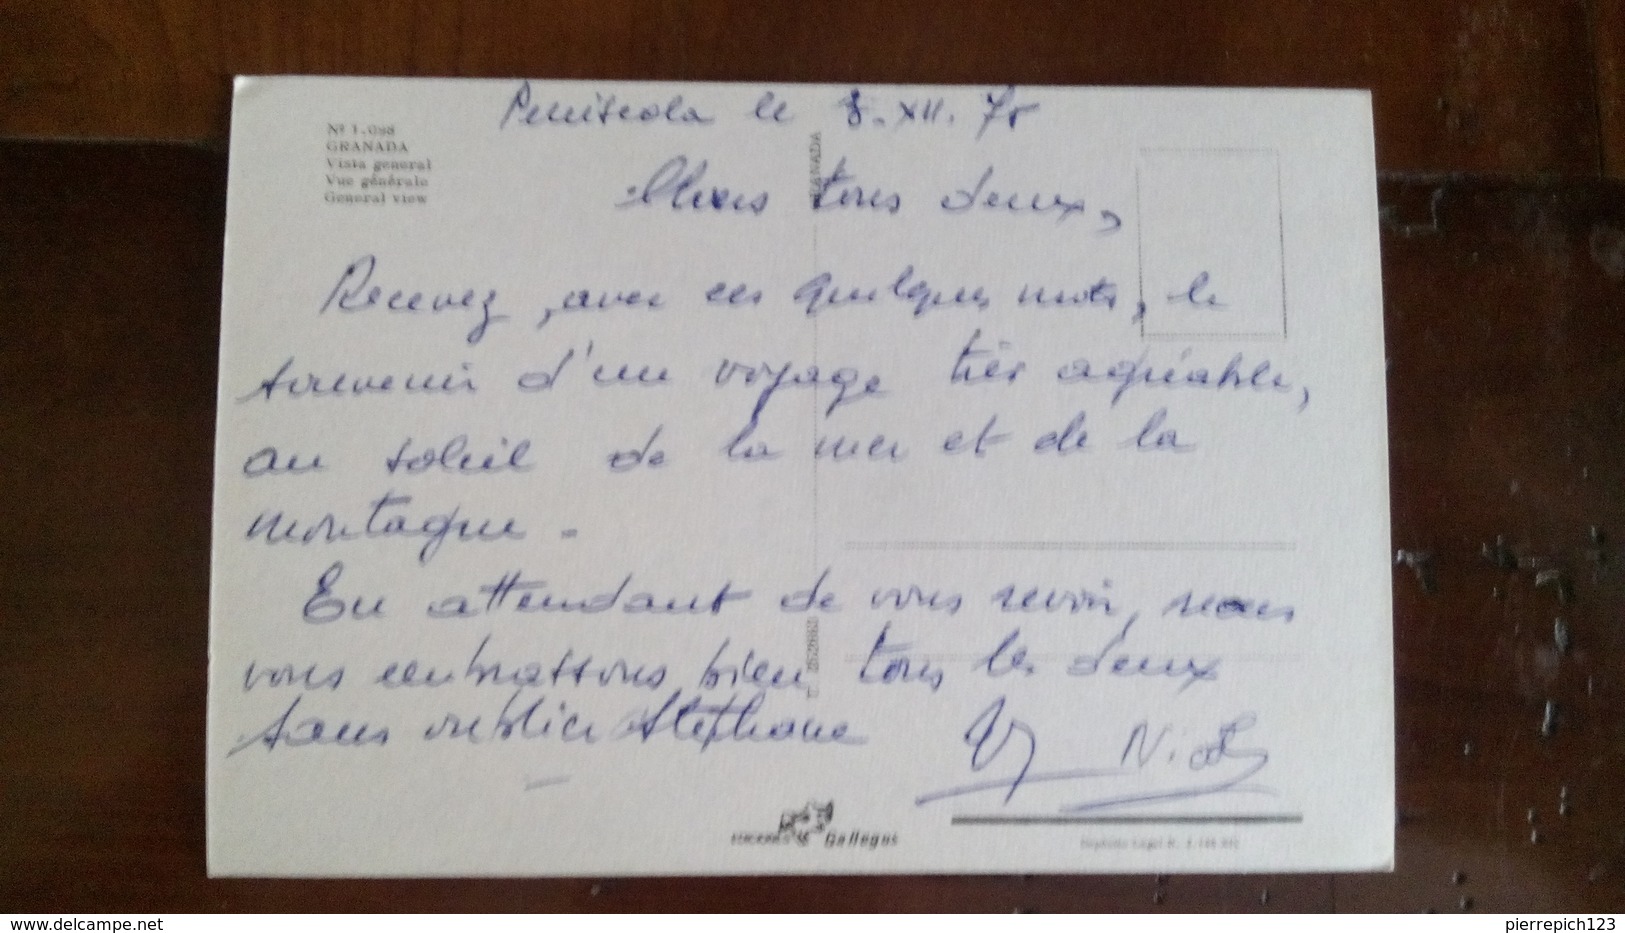 Peniscola le 8. XII. 75
Nº 1.098
GRANADA
Vista general
Vue générale
General view
GRANADA
Chers tous deux,
Recevez, avec ces quelques mots, le
souvenir d'un voyage très agréable,
au soleil de la mer et de la
montagne.
En attendant de vous revoir, nous
vous embrassons bien tous les deux
sans oublier Stéphane
Ediciones Gallegos
www.delcampe.net
pierrepich123